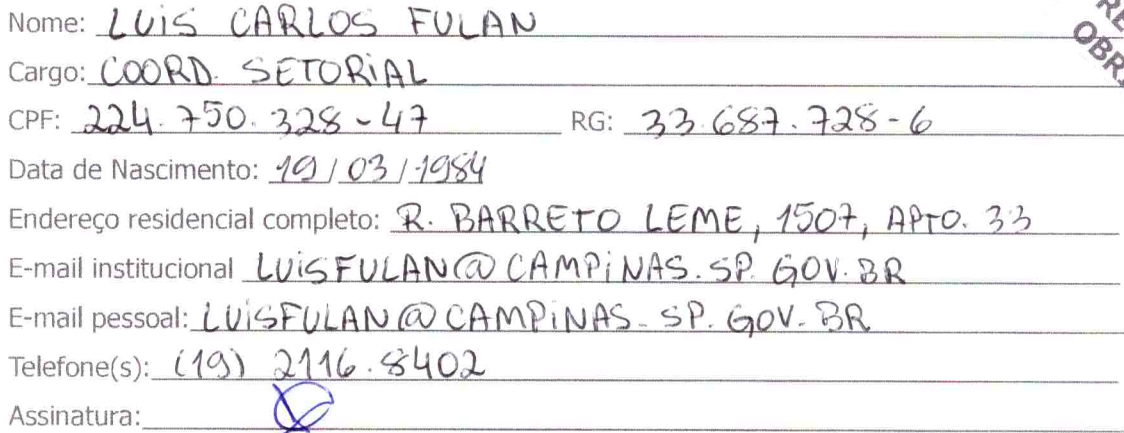 Nome: LUIS CARLOS FULAN
Cargo: COORD. SETORIAL
CPF: 224.750.328-47 RG: 33.687.728-6
Data de Nascimento: 19/03/1984
Endereço residencial completo: R. BARRETO LEME, 1507, APTO. 33
E-mail institucional LUISFULAN@CAMPINAS.SP.GOV.BR
E-mail pessoal: LUISFULAN@CAMPINAS.SP.GOV.BR
Telefone(s): (19) 2116.8402
Assinatura: